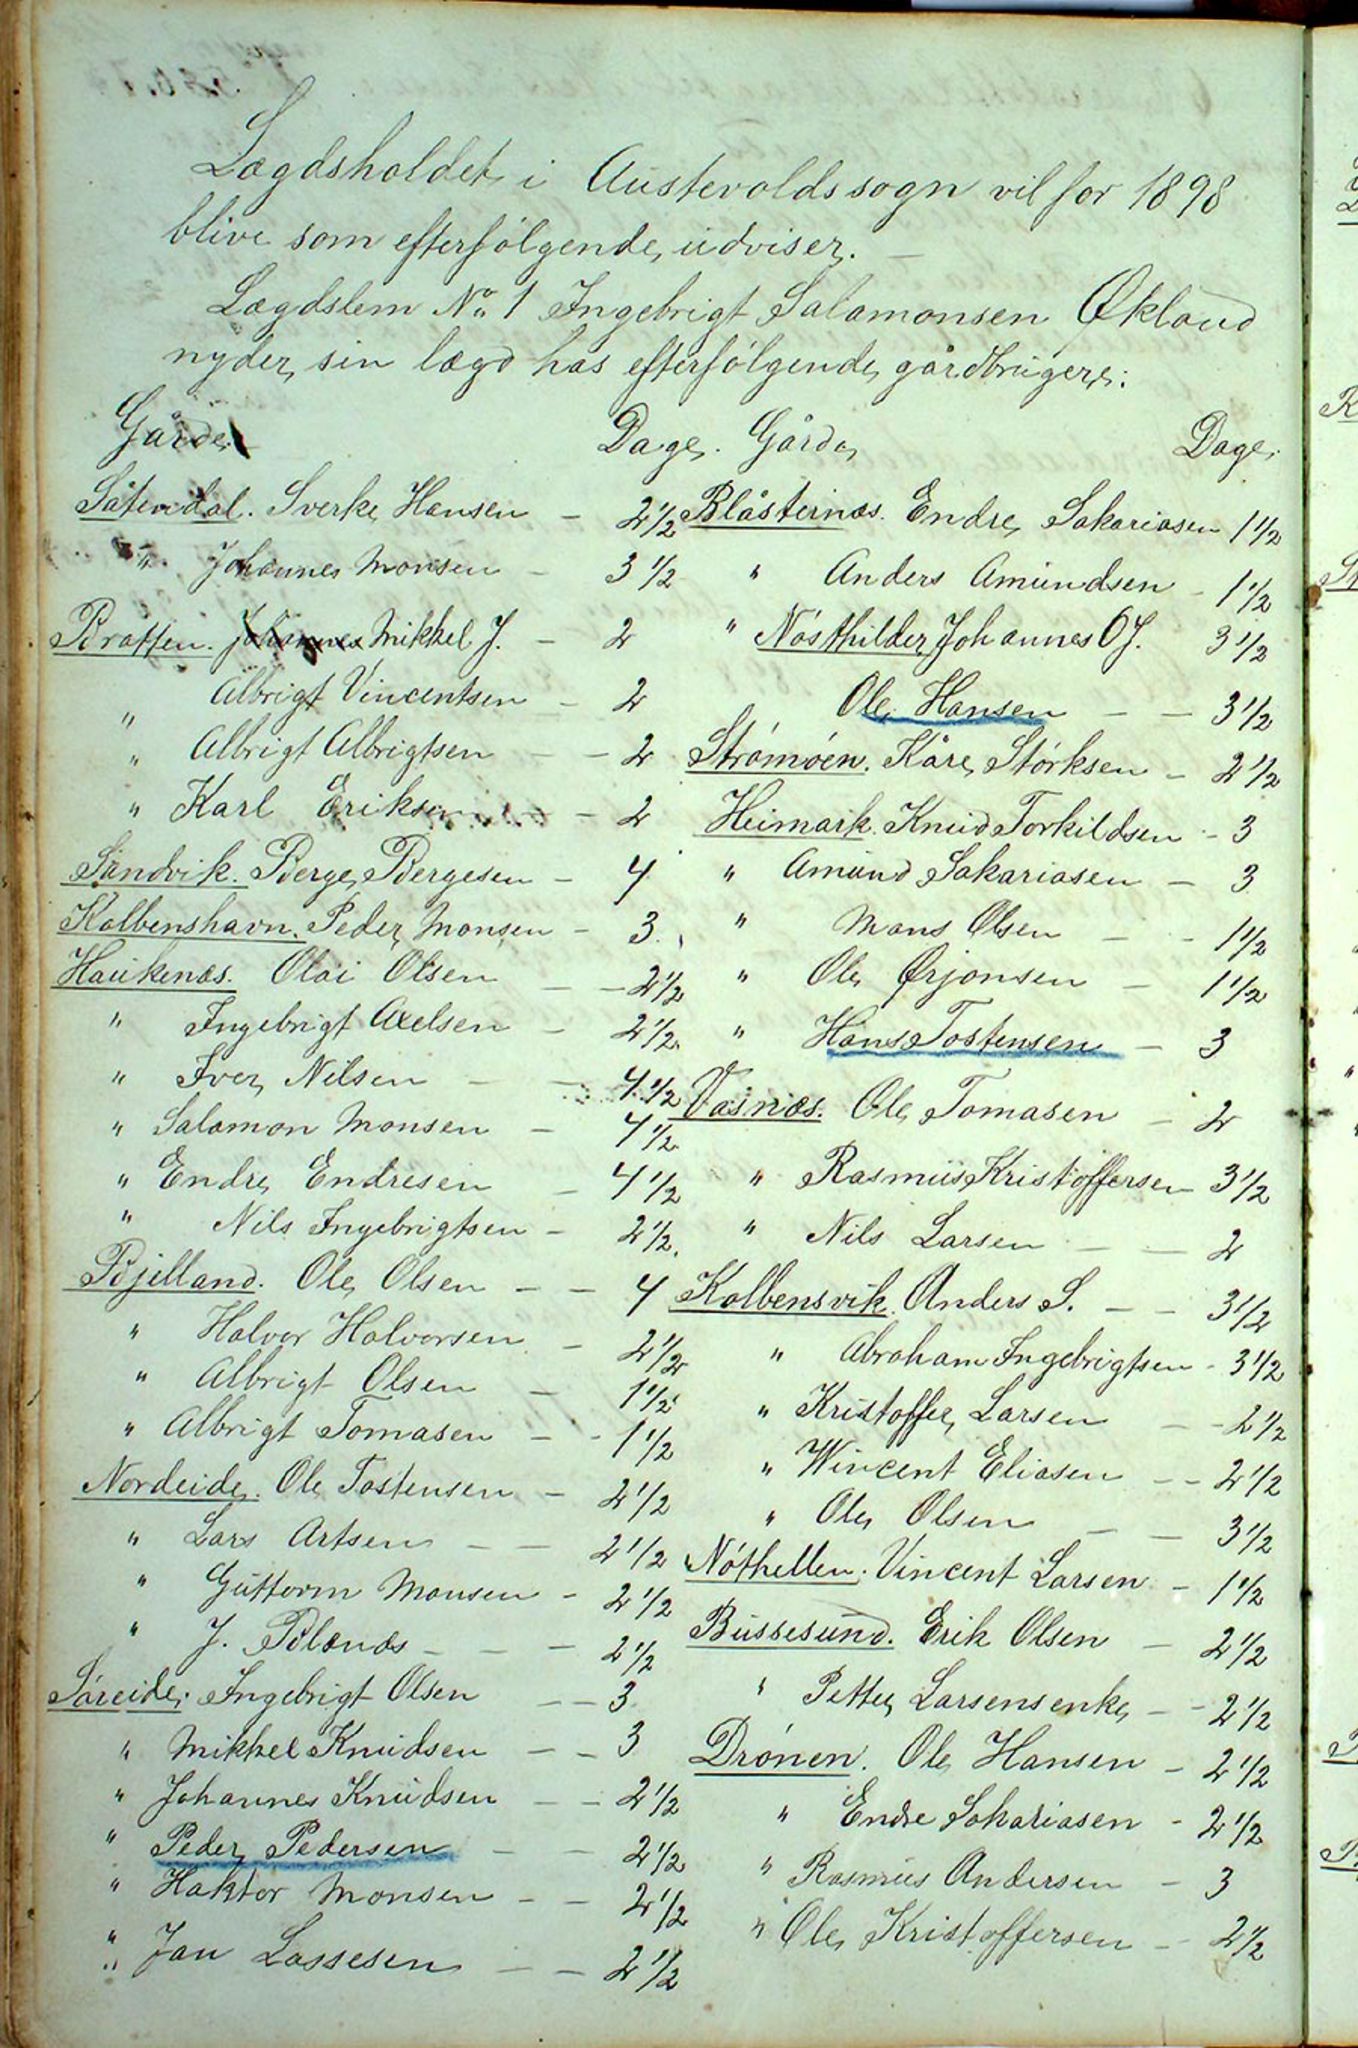 Lægdsholdet i Austevolds sogn vil for 1898
blive som efterfölgende udviser. —
Lægdslem No 1 Ingebrigt Salamonsen Økland
nyder sin lægd hos efterfölgende gårdbrugere:
Gårde Dage.
Såtevedal. Sverke Hansen — 2 1/2
" Johannes Monsen — 3 1/2
Bratten. Johannes Mikkel J. — 2
" Albrigt Vincentsen — 2
" Albrigt Albrigtsen — — 2
" Karl Eriksen — 2
Sandvik. Berge Bergesen — 4
Kolbenshavn. Peder Monsen — 3
Haukenæs. Olai Olsen — — 2 1/2
" Ingebrigt Axelsen — 2 1/2
" Iver Nilsen — — 4 1/2
" Salamon Monsen — 4 1/2
" Endre Endresen — 4 1/2
" Nils Ingebrigtsen — 2 1/2
Bjelland. Ole Olsen — — 4
" Halvor Halvorsen — 2 1/2
" Albrigt Olsen — 1 1/2
" Albrigt Tomasen — - 1 1/2
Nordeide. Ole Tostensen — 2 1/2
" Lars Artsen — — 2 1/2
" Guttorm Monsen - 2 1/2
" J. Blænæs — — 2 1/2
Söreide. Ingebrigt Olsen — — 3
" Mikkel Knudsen — — 3
" Johannes Knudsen — — 2 1/2
" Peder Pedersen — — 2 1/2
" Haktor Monsen — — 2 1/2
" Jan Lassesen — — 2 1/2
Gårde Dage.
Blåsternæs. Endre Sakariasen 1 1/2
" Anders Amundsen - 1 1/2
" Nösthilder Johannes O J. 3 1/2
Ole Hansen — — 3 1/2
Strömöen. Kåre Störksen — 2 1/2
Heimark. Knud Torkildsen - 3
" Amund Sakariasen — 3
" Mons Olsen — - 1 1/2
" Ole Ørjansen — 1 1/2
" Hans Tostensen — 3
Vasnæs. Ole Tomasen — 2
" Rasmus Kristoffersen 3 1/2
" Nils Larsen — — 2
Kolbensvik. Anders S. — — 3 1/2
" Abraham Ingebrigtsen - 3 1/2
" Kristoffer Larsen — - 2 1/2
" Wincent Eliasen — — 2 1/2
" Ole Olsen — — 3 1/2
Nöthellen. Vincent Larsen — 1 1/2
Bussesund. Erik Olsen — 2 1/2
" Petter Larsens enke — - 2 1/2
Drönen. Ole Hansen — 2 1/2
" Endre Sakariasen - 2 1/2
" Rasmus Andersen — 3
" Ole Kristoffersen — 2 1/2